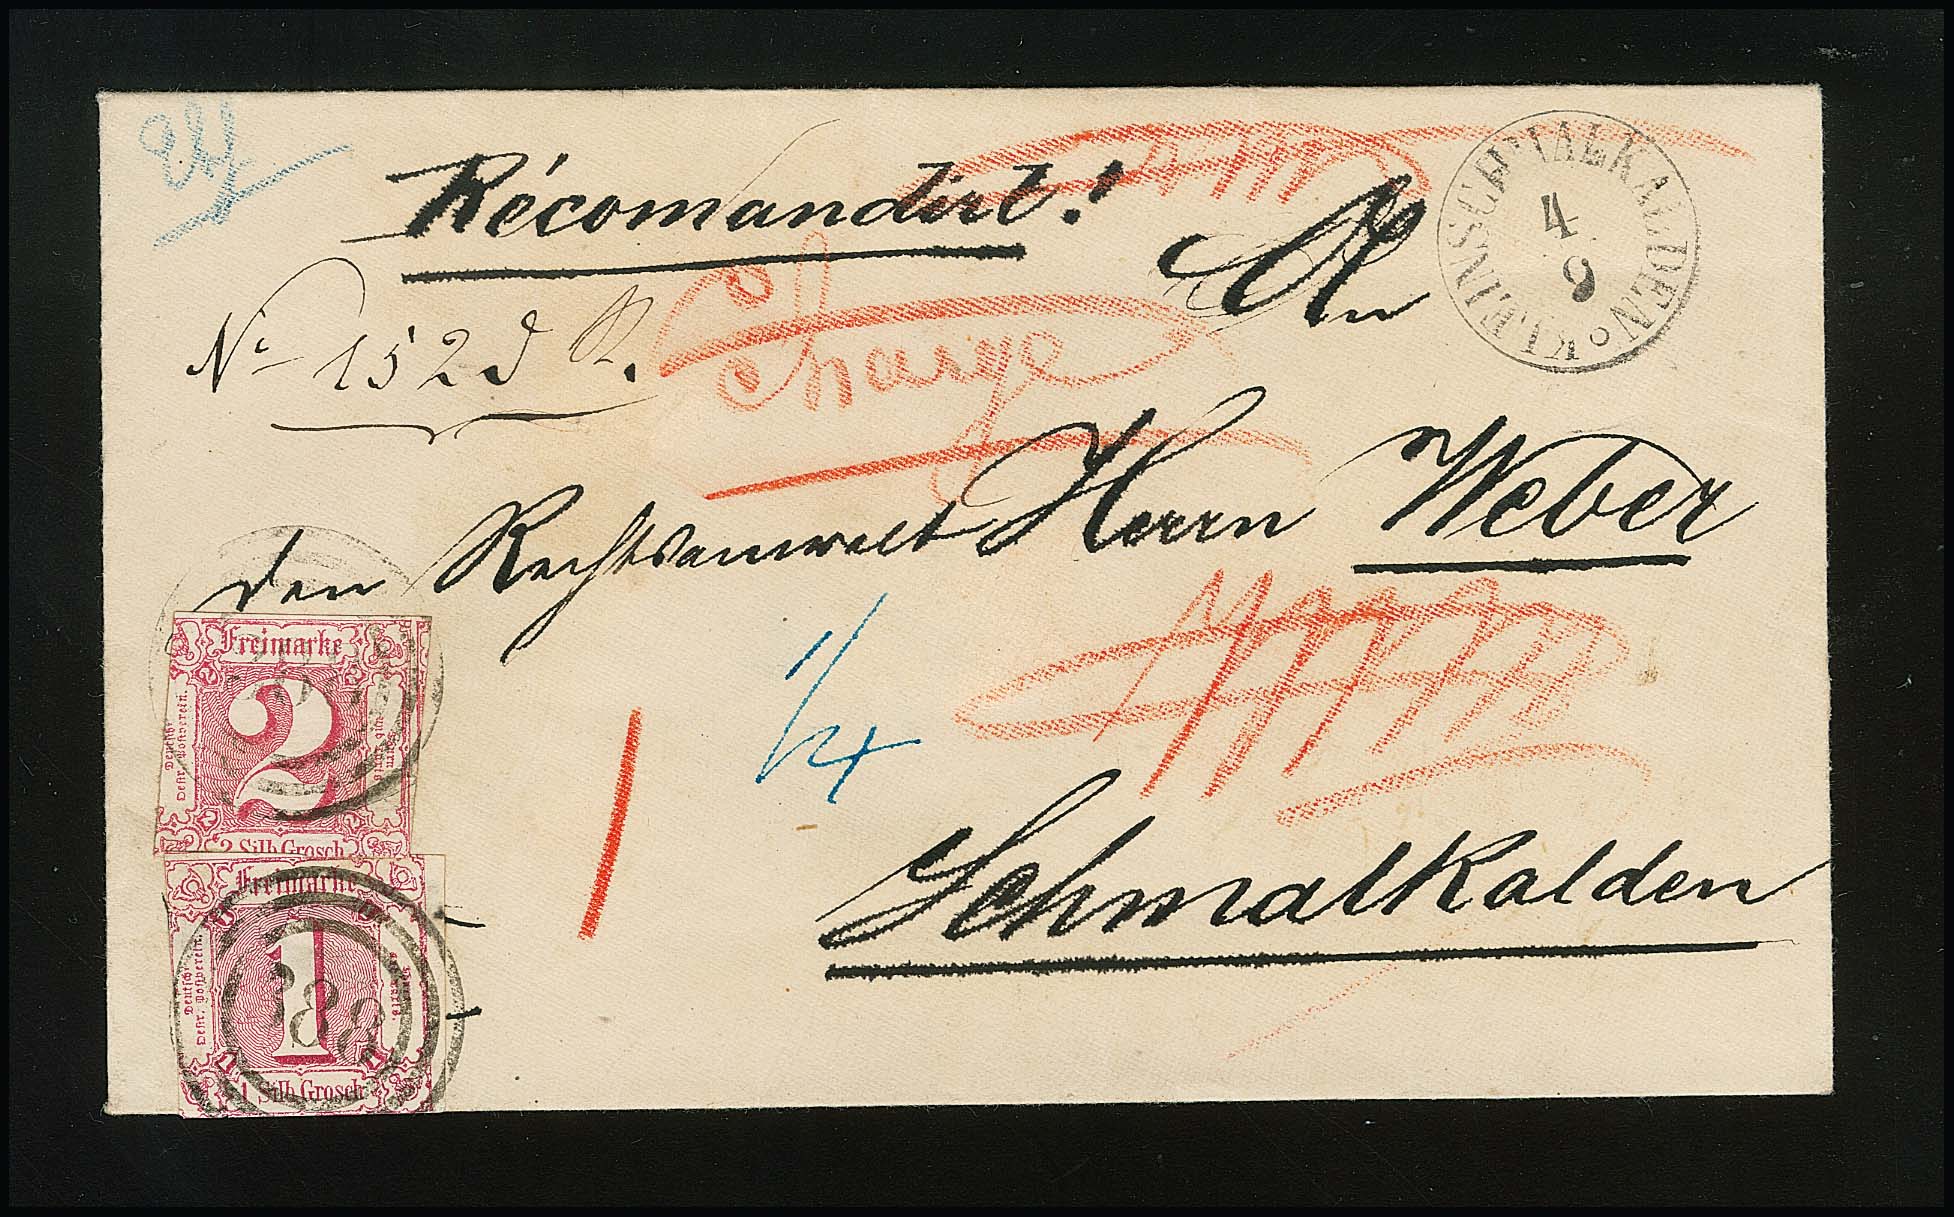 Récomandirt!
An
KLEINSCHMALKALDEN
4
9
No 152
Charge
den Rechtsanwalt Herrn Weber
1/4
Schmalkalden
Freimarke
2
2 Silb Grosch
Freimarke
1
Deutsch Oestr. Postverein.
388
1 Silb Grosch